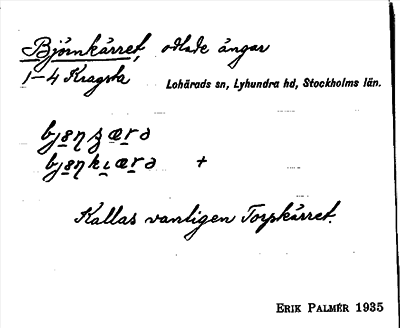 Björnkärret, odlade ängar
1-4 Kragsta
Lohärads sn, Lyhundra hd, Stockholms län.
+
Kallas vanligen Torpkärret.
ERIK PALMÉR 1935